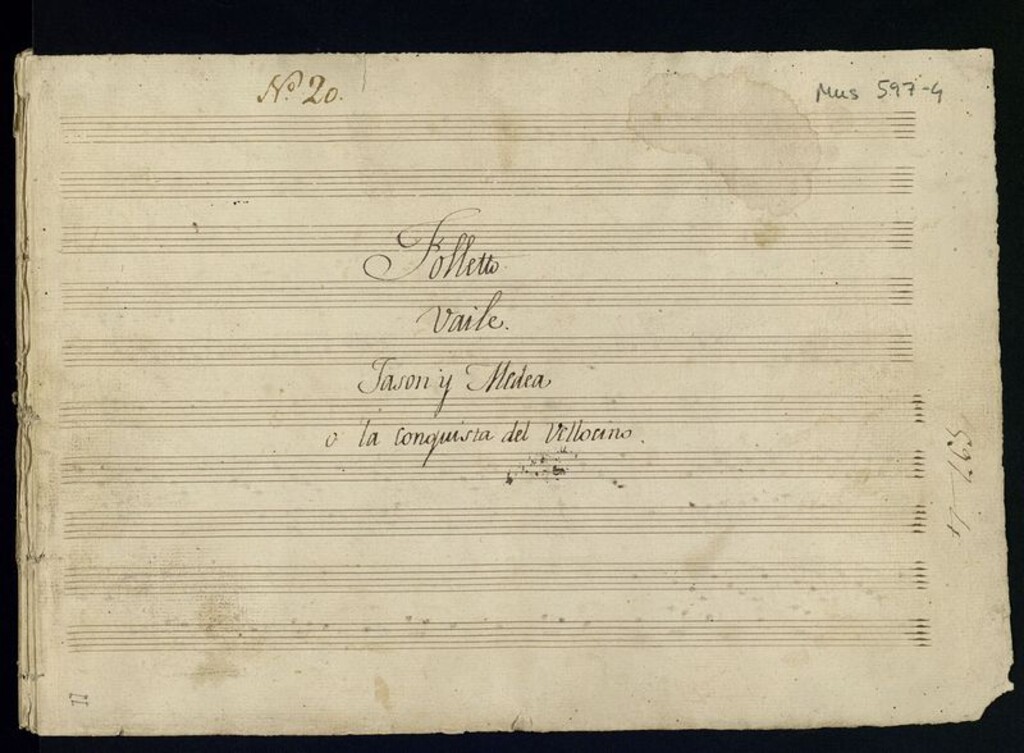 Nº 20.
Mus 597-4
Folletto.
Vaile.
Jason y Medea
o la Conquista del Vellocino.
597-4